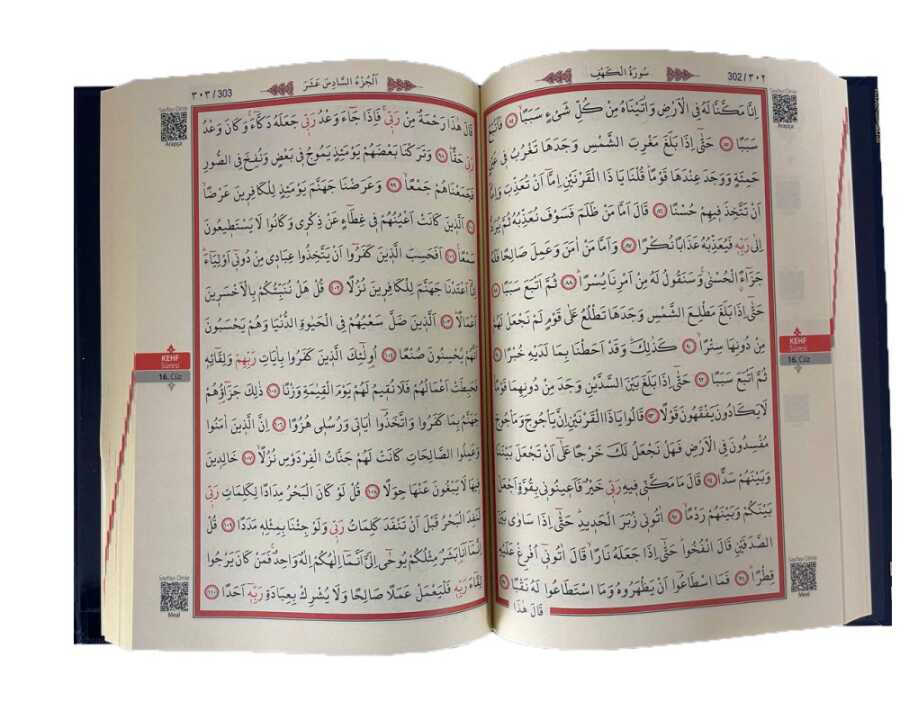 302/٣٠٢
سُورَةُ الْكَهْفِ
اِنَّا مَكَّنَّا لَهُ فِي الْاَرْضِ وَاٰتَيْنَاهُ مِنْ كُلِّ شَيْءٍ سَبَبًاۙ ﴿٨٤﴾ فَاَتْبَعَ
سَبَبًا ﴿٨٥﴾ حَتّٰٓى اِذَا بَلَغَ مَغْرِبَ الشَّمْسِ وَجَدَهَا تَغْرُبُ ف۪ي عَيْنٍ
حَمِئَةٍ وَوَجَدَ عِنْدَهَا قَوْمًاۜ قُلْنَا يَا ذَا الْقَرْنَيْنِ اِمَّٓا اَنْ تُعَذِّبَ وَاِمَّٓا
اَنْ تَتَّخِذَ ف۪يهِمْ حُسْنًا ﴿٨٦﴾ قَالَ اَمَّا مَنْ ظَلَمَ فَسَوْفَ نُعَذِّبُهُ ثُمَّ يُرَدُّ
اِلٰى رَبِّه۪ فَيُعَذِّبُهُ عَذَابًا نُكْرًا ﴿٨٧﴾ وَاَمَّا مَنْ اٰمَنَ وَعَمِلَ صَالِحًا فَلَهُ
جَزَٓاءًۨ الْحُسْنٰىۚ وَسَنَقُولُ لَهُ مِنْ اَمْرِنَا يُسْرًاۜ ﴿٨٨﴾ ثُمَّ اَتْبَعَ سَبَبًا ﴿٨٩﴾
حَتّٰٓى اِذَا بَلَغَ مَطْلِعَ الشَّمْسِ وَجَدَهَا تَطْلُعُ عَلٰى قَوْمٍ لَمْ نَجْعَلْ لَهُمْ
مِنْ دُونِهَا سِتْرًاۙ ﴿٩٠﴾ كَذٰلِكَۜ وَقَدْ اَحَطْنَا بِمَا لَدَيْهِ خُبْرًا ﴿٩١﴾
ثُمَّ اَتْبَعَ سَبَبًا ﴿٩٢﴾ حَتّٰٓى اِذَا بَلَغَ بَيْنَ السَّدَّيْنِ وَجَدَ مِنْ دُونِهِمَا قَوْمًاۙ
لَا يَكَادُونَ يَفْقَهُونَ قَوْلًا ﴿٩٣﴾ قَالُوا يَا ذَا الْقَرْنَيْنِ اِنَّ يَأْجُوجَ وَمَأْجُوجَ
مُفْسِدُونَ فِي الْاَرْضِ فَهَلْ نَجْعَلُ لَكَ خَرْجًا عَلٰٓى اَنْ تَجْعَلَ بَيْنَنَا
وَبَيْنَهُمْ سَدًّا ﴿٩٤﴾ قَالَ مَا مَكَّنّ۪ي ف۪يهِ رَبّ۪ي خَيْرٌ فَاَع۪ينُون۪ي بِقُوَّةٍ اَجْعَلْ
بَيْنَكُمْ وَبَيْنَهُمْ رَدْمًاۙ ﴿٩٥﴾ اٰتُون۪ي زُبَرَ الْحَد۪يدِۜ حَتّٰٓى اِذَا سَاوٰى بَيْنَ
الصَّدَفَيْنِ قَالَ انْفُخُواۜ حَتّٰٓى اِذَا جَعَلَهُ نَارًاۙ قَالَ اٰتُون۪ٓي اُفْرِغْ عَلَيْهِ
قِطْرًاۜ ﴿٩٦﴾ فَمَا اسْطَاعُٓوا اَنْ يَظْهَرُوهُ وَمَا اسْتَطَاعُوا لَهُ نَقْبًا ﴿٩٧﴾
قَالَ هٰذَا
Sayfayı Dinle
Arapça
KEHF
Sûresi
16. Cüz
Sayfayı Dinle
Meal
٣٠٣/303
اَلْجُزْءُ السَّادِسَ عَشَرَ
قَالَ هٰذَا رَحْمَةٌ مِنْ رَبّ۪يۚ فَاِذَا جَٓاءَ وَعْدُ رَبّ۪ي جَعَلَهُ دَكَّٓاءَۚ وَكَانَ وَعْدُ
رَبّ۪ي حَقًّاۜ ﴿٩٨﴾ وَتَرَكْنَا بَعْضَهُمْ يَوْمَئِذٍ يَمُوجُ ف۪ي بَعْضٍ وَنُفِخَ فِي الصُّورِ
فَجَمَعْنَاهُمْ جَمْعًاۙ ﴿٩٩﴾ وَعَرَضْنَا جَهَنَّمَ يَوْمَئِذٍ لِلْكَافِر۪ينَ عَرْضًاۙ
﴿١٠٠﴾ اَلَّذ۪ينَ كَانَتْ اَعْيُنُهُمْ ف۪ي غِطَٓاءٍ عَنْ ذِكْر۪ي وَكَانُوا لَا يَسْتَط۪يعُونَ
سَمْعًا۟ ﴿١٠١﴾ اَفَحَسِبَ الَّذ۪ينَ كَفَرُٓوا اَنْ يَتَّخِذُوا عِبَاد۪ي مِنْ دُون۪ٓي اَوْلِيَٓاءَۜ
اِنَّٓا اَعْتَدْنَا جَهَنَّمَ لِلْكَافِر۪ينَ نُزُلًا ﴿١٠٢﴾ قُلْ هَلْ نُنَبِّئُكُمْ بِالْاَخْسَر۪ينَ
اَعْمَالًاۜ ﴿١٠٣﴾ اَلَّذ۪ينَ ضَلَّ سَعْيُهُمْ فِي الْحَيٰوةِ الدُّنْيَا وَهُمْ يَحْسَبُونَ
اَنَّهُمْ يُحْسِنُونَ صُنْعًا ﴿١٠٤﴾ اُو۬لٰٓئِكَ الَّذ۪ينَ كَفَرُوا بِاٰيَاتِ رَبِّهِمْ وَلِقَٓائِه۪
فَحَبِطَتْ اَعْمَالُهُمْ فَلَا نُق۪يمُ لَهُمْ يَوْمَ الْقِيٰمَةِ وَزْنًا ﴿١٠٥﴾ ذٰلِكَ جَزَٓاؤُ۬هُمْ
جَهَنَّمُ بِمَا كَفَرُوا وَاتَّخَذُٓوا اٰيَات۪ي وَرُسُل۪ي هُزُوًا ﴿١٠٦﴾ اِنَّ الَّذ۪ينَ اٰمَنُوا
وَعَمِلُوا الصَّالِحَاتِ كَانَتْ لَهُمْ جَنَّاتُ الْفِرْدَوْسِ نُزُلًاۙ ﴿١٠٧﴾ خَالِد۪ينَ
ف۪يهَا لَا يَبْغُونَ عَنْهَا حِوَلًا ﴿١٠٨﴾ قُلْ لَوْ كَانَ الْبَحْرُ مِدَادًا لِكَلِمَاتِ رَبّ۪ي
لَنَفِدَ الْبَحْرُ قَبْلَ اَنْ تَنْفَدَ كَلِمَاتُ رَبّ۪ي وَلَوْ جِئْنَا بِمِثْلِه۪ مَدَدًا ﴿١٠٩﴾ قُلْ
اِنَّمَٓا اَنَا۬ بَشَرٌ مِثْلُكُمْ يُوحٰٓى اِلَيَّ اَنَّمَٓا اِلٰهُكُمْ اِلٰهٌ وَاحِدٌۚ فَمَنْ كَانَ يَرْجُوا
لِقَٓاءَ رَبِّه۪ فَلْيَعْمَلْ عَمَلًا صَالِحًا وَلَا يُشْرِكْ بِعِبَادَةِ رَبِّه۪ٓ اَحَدًا ﴿١١٠﴾
Sayfayı Dinle
Arapça
KEHF
Sûresi
16. Cüz
Sayfayı Dinle
Meal